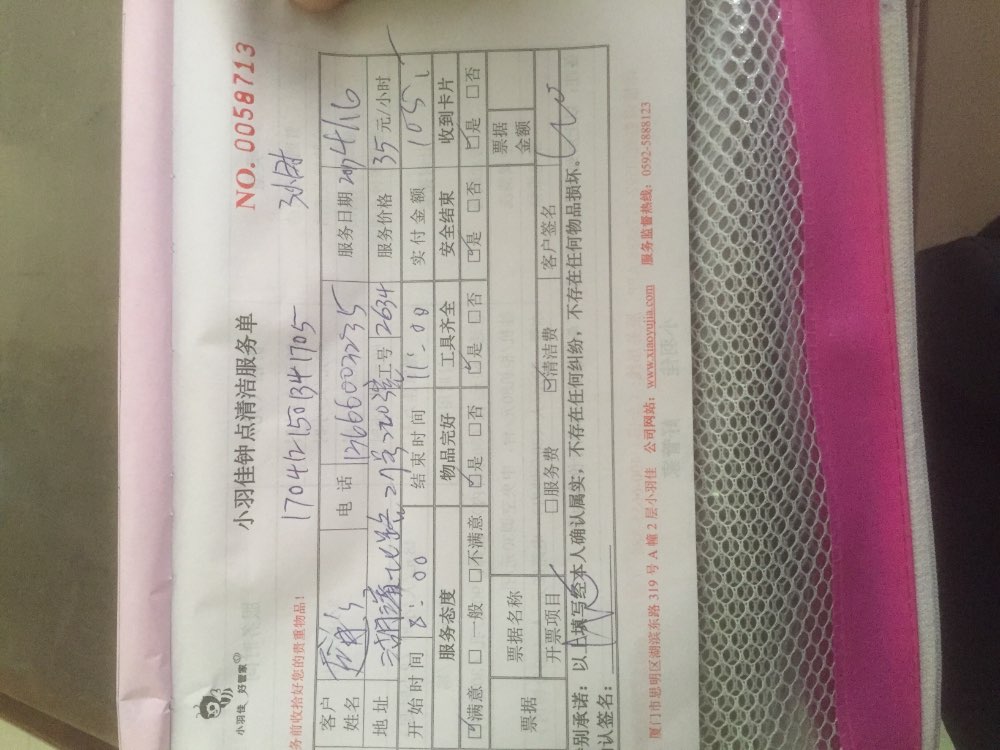 小羽佳 好管家
小羽佳钟点清洁服务单
NO. 0058713
务前收拾好您的贵重物品!
170412150134 1705
3小时
客户姓名
电 话
服务日期 2017 4/16
地 址
工号 2634
服务价格 35元/小时
开始时间 8:00
结束时间 11:00
实付金额 105
服务态度 物品完好 工具齐全 安全结束 收到卡片
☑满意 □一般 □不满意 ☑是 □否 ☑是 □否 ☑是 □否 ☑是 □否
票据 票据名称 票据金额
开票项目 □服务费 ☑清洁费 客户签名
别承诺:以上填写经本人确认属实,不存在任何纠纷,不存在任何物品损坏。
认签名:
厦门市思明区湖滨东路 319 号 A 幢 2 层小羽佳 公司网站:www.xiaoyujia.com 服务监督热线:0592-5888123